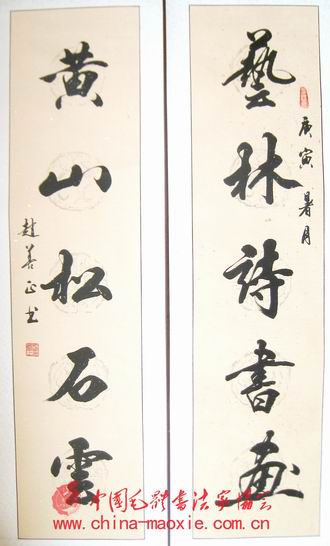 藝林詩書畫
庚寅暑月
黄山松石雲
趙善正书
中国毛體书法家協会
www.china-maoxie.com.cn